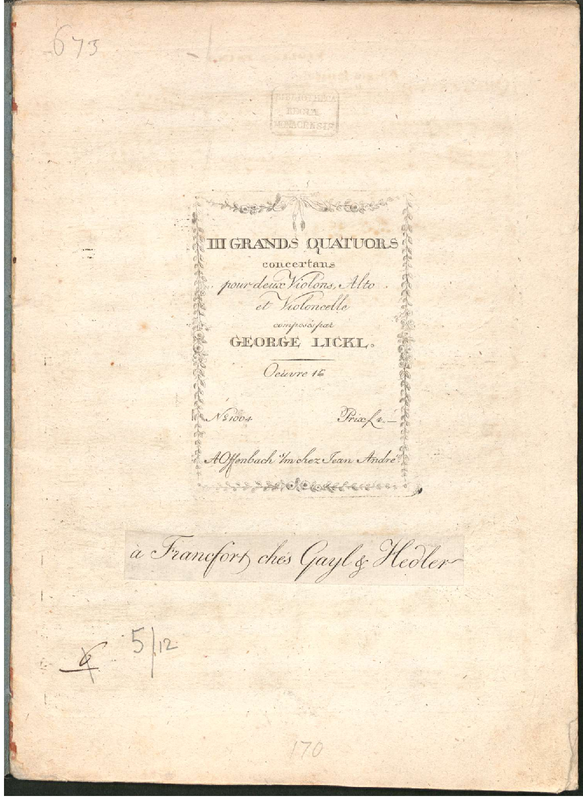 673
III GRANDS QUATUORS
concertans
pour deux Violons, Alto
et Violoncelle
composés par
GEORGE LICKL.
Oeuvre 16
No 1004
Prix f.
A Offenbach s/m chez Jean André
à Francfort chés Gayl & Hedler
5/12
170